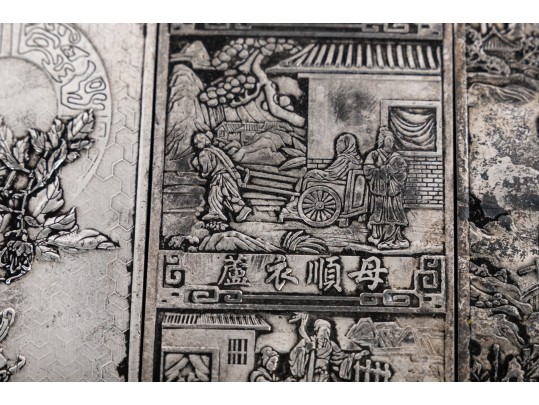 蘆衣順母